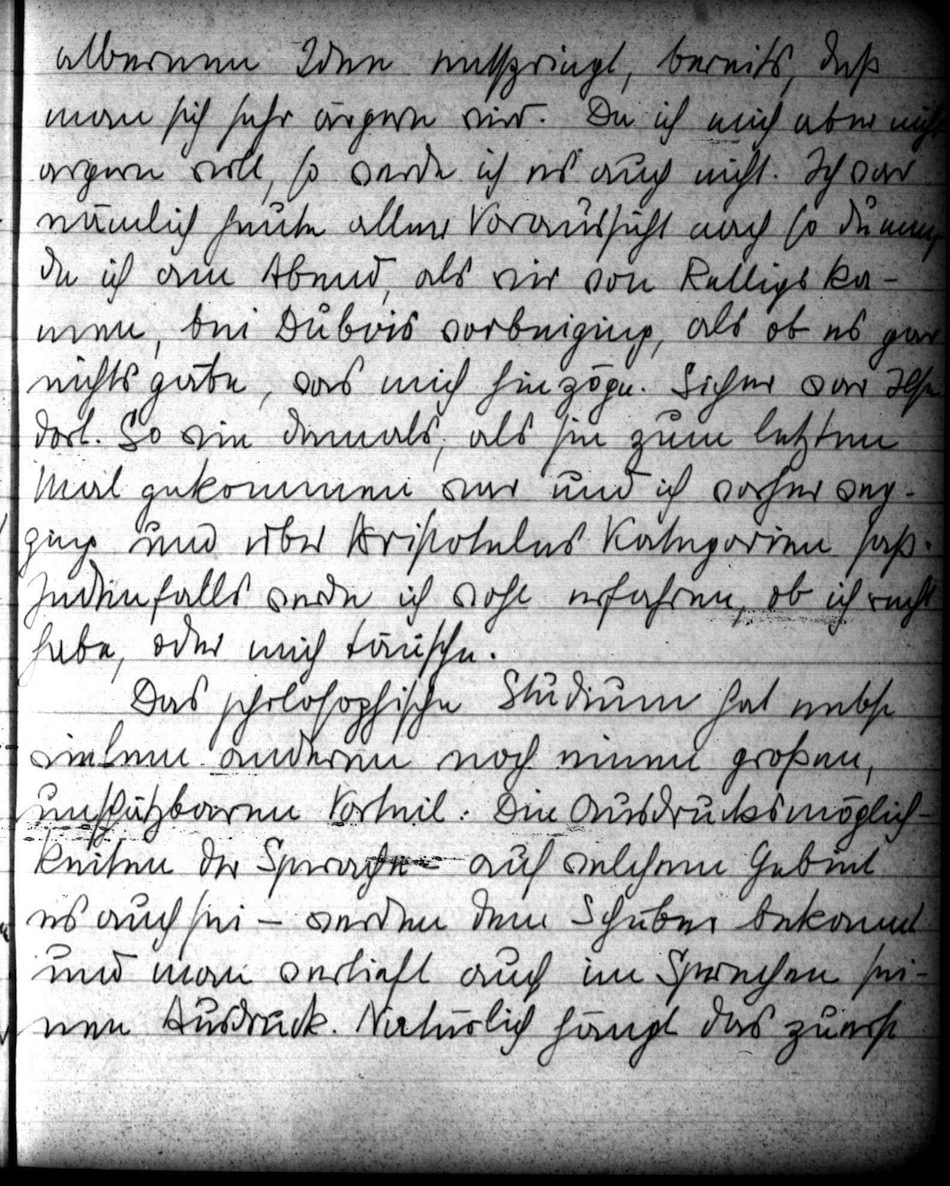 albernen Idee entspringt, bereits, daß
man sich sehr ärgern wird. Da ich mich aber nicht
ärgern will, so werde ich es auch nicht. Ich war
nämlich heute aller Voraussicht nach so dumm,
da ich am Abend, als wir von Ralligs ka-
men, bei Dubois vorbeiging, als ob es gar
nichts gäbe, was mich hinzöge. Sicher war Ilse
dort. So wie damals, als sie zum letzten
Mal gekommen war und ich vorher weg-
ging und über Aristoteles Kategorien saß.
Jedenfalls werde ich wohl erfahren, ob ich recht
habe, oder mich täusche.
Das philosophische Studium hat nebst
vielen anderen noch einen großen,
unschätzbaren Vorteil: Die Ausdrucksmöglich-
keiten der Sprache – auf welchem Gebiet
es auch sei – werden dem Schüler bekannt
und man vertieft auch im Sprechen sei-
nen Ausdruck. Natürlich hängt das zuerst